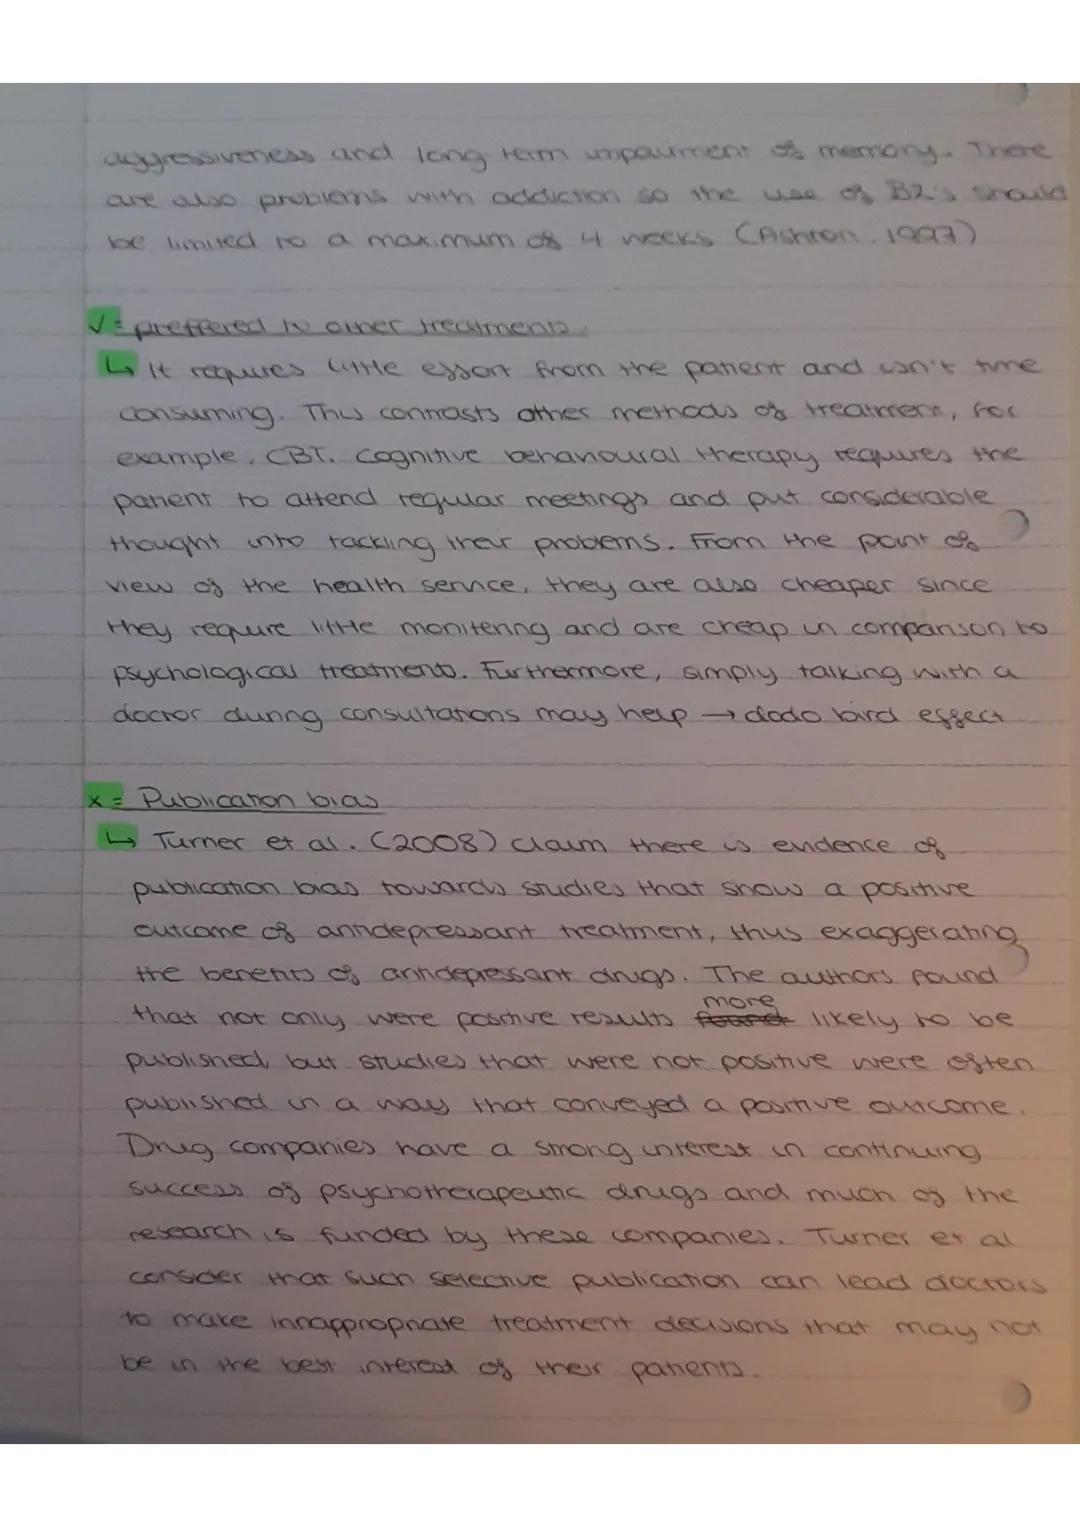 aggressiveness and long term impairment of memory. There
are also problems with addiction so the use of BZ's should
be limited to a maximum of 4 weeks (Ashton, 1997)
✓ = preffered to other treatments.
↳ It requires little effort from the patient and isn't time
consuming. This contrasts other methods of treatment, for
example, CBT. Cognitive behavioural therapy requires the
patient to attend regular meetings and put considerable
thought into tackling their problems. From the point of
view of the health service, they are also cheaper since
they require little monitering and are cheap in comparison to
psychological treatments. Furthermore, simply talking with a
doctor during consultations may help → dodo bird effect
x = Publication bias
↳ Turner et al. (2008) claim there is evidence of
publication bias towards studies that show a positive
outcome of antidepressant treatment, thus exaggerating
the benefits of antidepressant drugs. The authors found
that not only were positive results more likely to be
published, but studies that were not positive were often
published in a way that conveyed a positive outcome.
Drug companies have a strong interest in continuing
success of psychotherapeutic drugs and much of the
research is funded by these companies. Turner et al
consider that such selective publication can lead doctors
to make innappropriate treatment decisions that may not
be in the best interest of their patients.